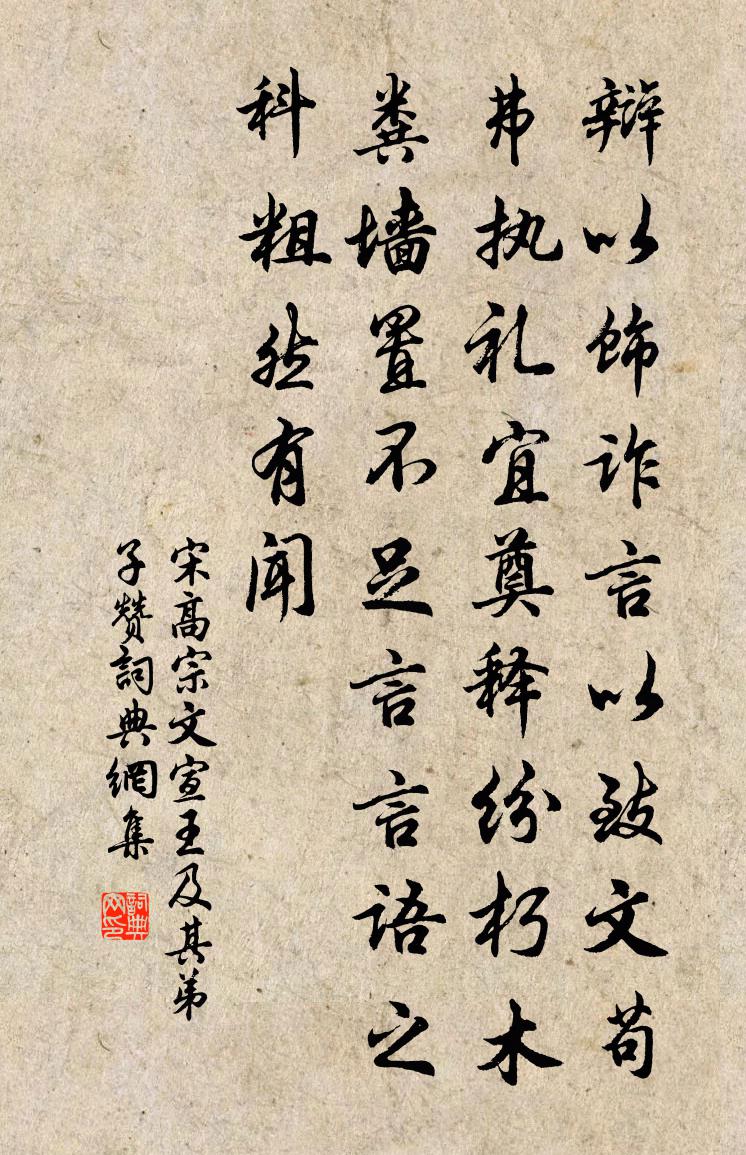 辩以饰诈言以致文苟
弗执礼宜奠释纷朽木
粪墙置不足言言语之
科粗然有闻
宋高宗文宣王及其弟
子赞詞典網集
詞典
网印